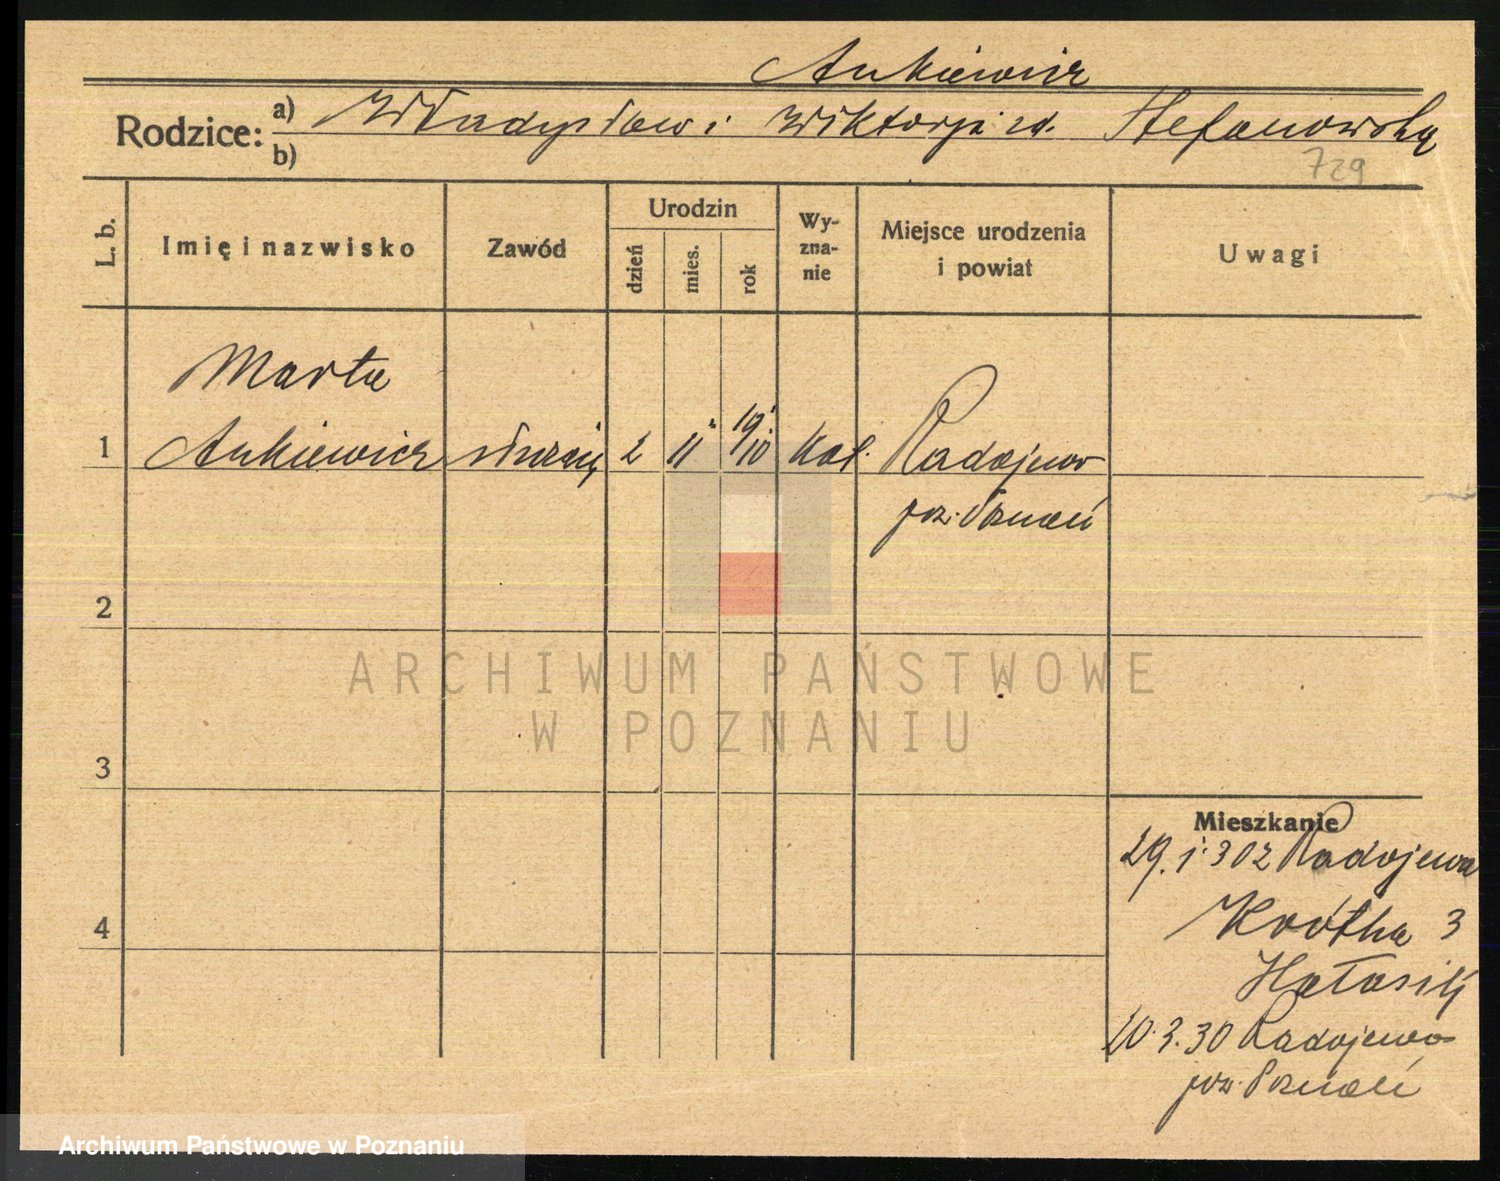 Ankiewicz
Rodzice: a) Władysław i Wiktorja zd. Stefanowska
b)
729
L. b.
Imię i nazwisko
Zawód
Urodzin
dzień
mies.
rok
Wy-
zna-
nie
Miejsce urodzenia
i powiat
Uwagi
Marta
1 Ankiewicz służąc 2 11 19/10 kat. Radojewo
pow. Poznań
2
3
4
Mieszkanie
29.1.30 z Radojewa
Krótka 3
20.3.30 Radojewo
pow. Poznań
ARCHIWUM PAŃSTWOWE
W POZNANIU
Archiwum Państwowe w Poznaniu